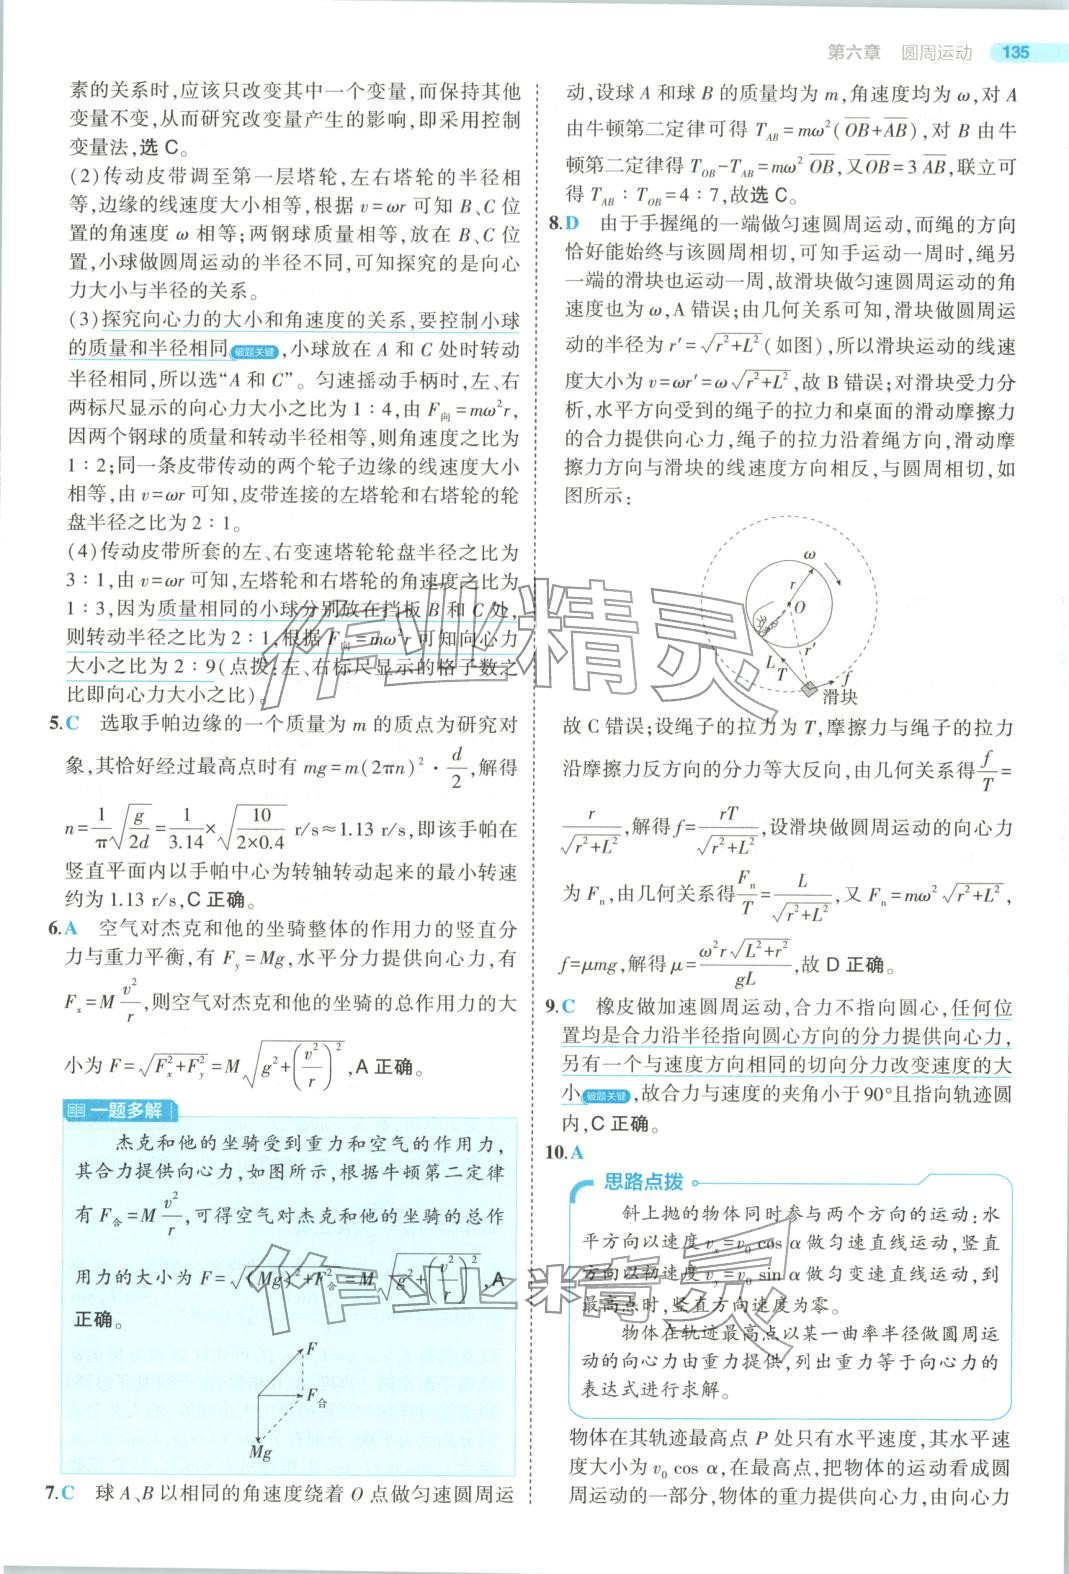 第六章 圆周运动 135
素的关系时,应该只改变其中一个变量,而保持其他
变量不变,从而研究改变量产生的影响,即采用控制
变量法,选C。
(2)传动皮带调至第一层塔轮,左右塔轮的半径相
等,边缘的线速度大小相等,根据v=ωr可知B、C位
置的角速度ω相等;两钢球质量相等,而放在B、C位
置,小球做圆周运动的半径不同,可知探究的是向心
力大小与半径的关系。
(3)探究向心力的大小和角速度的关系,要控制小球
的质量和半径相同 破题关键 ,小球放在A和C处时转动
半径相同,所以选“A和C”。匀速摇动手柄时,左、右
两标尺显示的向心力大小之比为1∶4,由F向=mω²r,
因两个钢球的质量和转动半径相等,则角速度之比为
1∶2;同一条皮带传动的两个轮子边缘的线速度大小
相等,由v=ωr可知,皮带连接的左塔轮和右塔轮的轮
盘半径之比为2∶1。
(4)传动皮带所套的左、右变速塔轮轮盘半径之比为
3∶1,由v=ωr可知,左塔轮和右塔轮的角速度之比为
1∶3,因为质量相同的小球分别放在挡板B和C处,
则转动半径之比为2∶1,根据F向=mω²r可知向心力
大小之比为2∶9(点拨:左、右标尺显示的格子数之
比即向心力大小之比)。
5.C 选取手帕边缘的一个质量为m的质点为研究对
象,其恰好经过最高点时有mg=m(2πn)²·d/2,解得
n=1/π√(g/2d)=1/3.14×√(10/(2×0.4)) r/s≈1.13 r/s,即该手帕在
竖直平面内以手帕中心为转轴转动起来的最小转速
约为1.13 r/s,C正确。
6.A 空气对杰克和他的坐骑整体的作用力的竖直分
力与重力平衡,有Fy=Mg,水平分力提供向心力,有
Fx=M v²/r,则空气对杰克和他的坐骑的总作用力的大
小为F=√(Fx²+Fy²)=M√(g²+(v²/r)²),A正确。
一题多解
杰克和他的坐骑受到重力和空气的作用力,
其合力提供向心力,如图所示,根据牛顿第二定律
有F合=M v²/r,可得空气对杰克和他的坐骑的总作
用力的大小为F=√((Mg)²+F合²)=M√(g²+(v²/r)²),A
正确。
F
F合
Mg
7.C 球A、B以相同的角速度绕着O点做匀速圆周运
动,设球A和球B的质量均为m,角速度均为ω,对A
由牛顿第二定律可得T_AB=mω²(OB+AB),对B由牛
顿第二定律得T_OB-T_AB=mω² OB,又OB=3 AB,联立可
得T_AB∶T_OB=4∶7,故选C。
8.D 由于手握绳的一端做匀速圆周运动,而绳的方向
恰好能始终与该圆周相切,可知手运动一周时,绳另
一端的滑块也运动一周,故滑块做匀速圆周运动的角
速度也为ω,A错误;由几何关系可知,滑块做圆周运
动的半径为r′=√(r²+L²)(如图),所以滑块运动的线速
度大小为v=ωr′=ω√(r²+L²),故B错误;对滑块受力分
析,水平方向受到的绳子的拉力和桌面的滑动摩擦力
的合力提供向心力,绳子的拉力沿着绳方向,滑动摩
擦力方向与滑块的线速度方向相反,与圆周相切,如
图所示:
ω
r
O
r′
L
T
f
滑块
故C错误;设绳子的拉力为T,摩擦力与绳子的拉力
沿摩擦力反方向的分力等大反向,由几何关系得f/T=
r/√(r²+L²),解得f=rT/√(r²+L²),设滑块做圆周运动的向心力
为Fn,由几何关系得Fn/T=L/√(r²+L²),又Fn=mω²√(r²+L²),
f=μmg,解得μ=ω²r√(L²+r²)/gL,故D正确。
9.C 橡皮做加速圆周运动,合力不指向圆心,任何位
置均是合力沿半径指向圆心方向的分力提供向心力,
另有一个与速度方向相同的切向分力改变速度的大
小 破题关键 ,故合力与速度的夹角小于90°且指向轨迹圆
内,C正确。
10.A
思路点拨
斜上抛的物体同时参与两个方向的运动:水
平方向以速度vx=v0 cos α做匀速直线运动,竖直
方向以初速度vy=v0 sin α做匀变速直线运动,到
最高点时,竖直方向速度为零。
物体在轨迹最高点以某一曲率半径做圆周运
动的向心力由重力提供,列出重力等于向心力的
表达式进行求解。
物体在其轨迹最高点P处只有水平速度,其水平速
度大小为v0 cos α,在最高点,把物体的运动看成圆
周运动的一部分,物体的重力提供向心力,由向心力
作业精灵
作业精灵